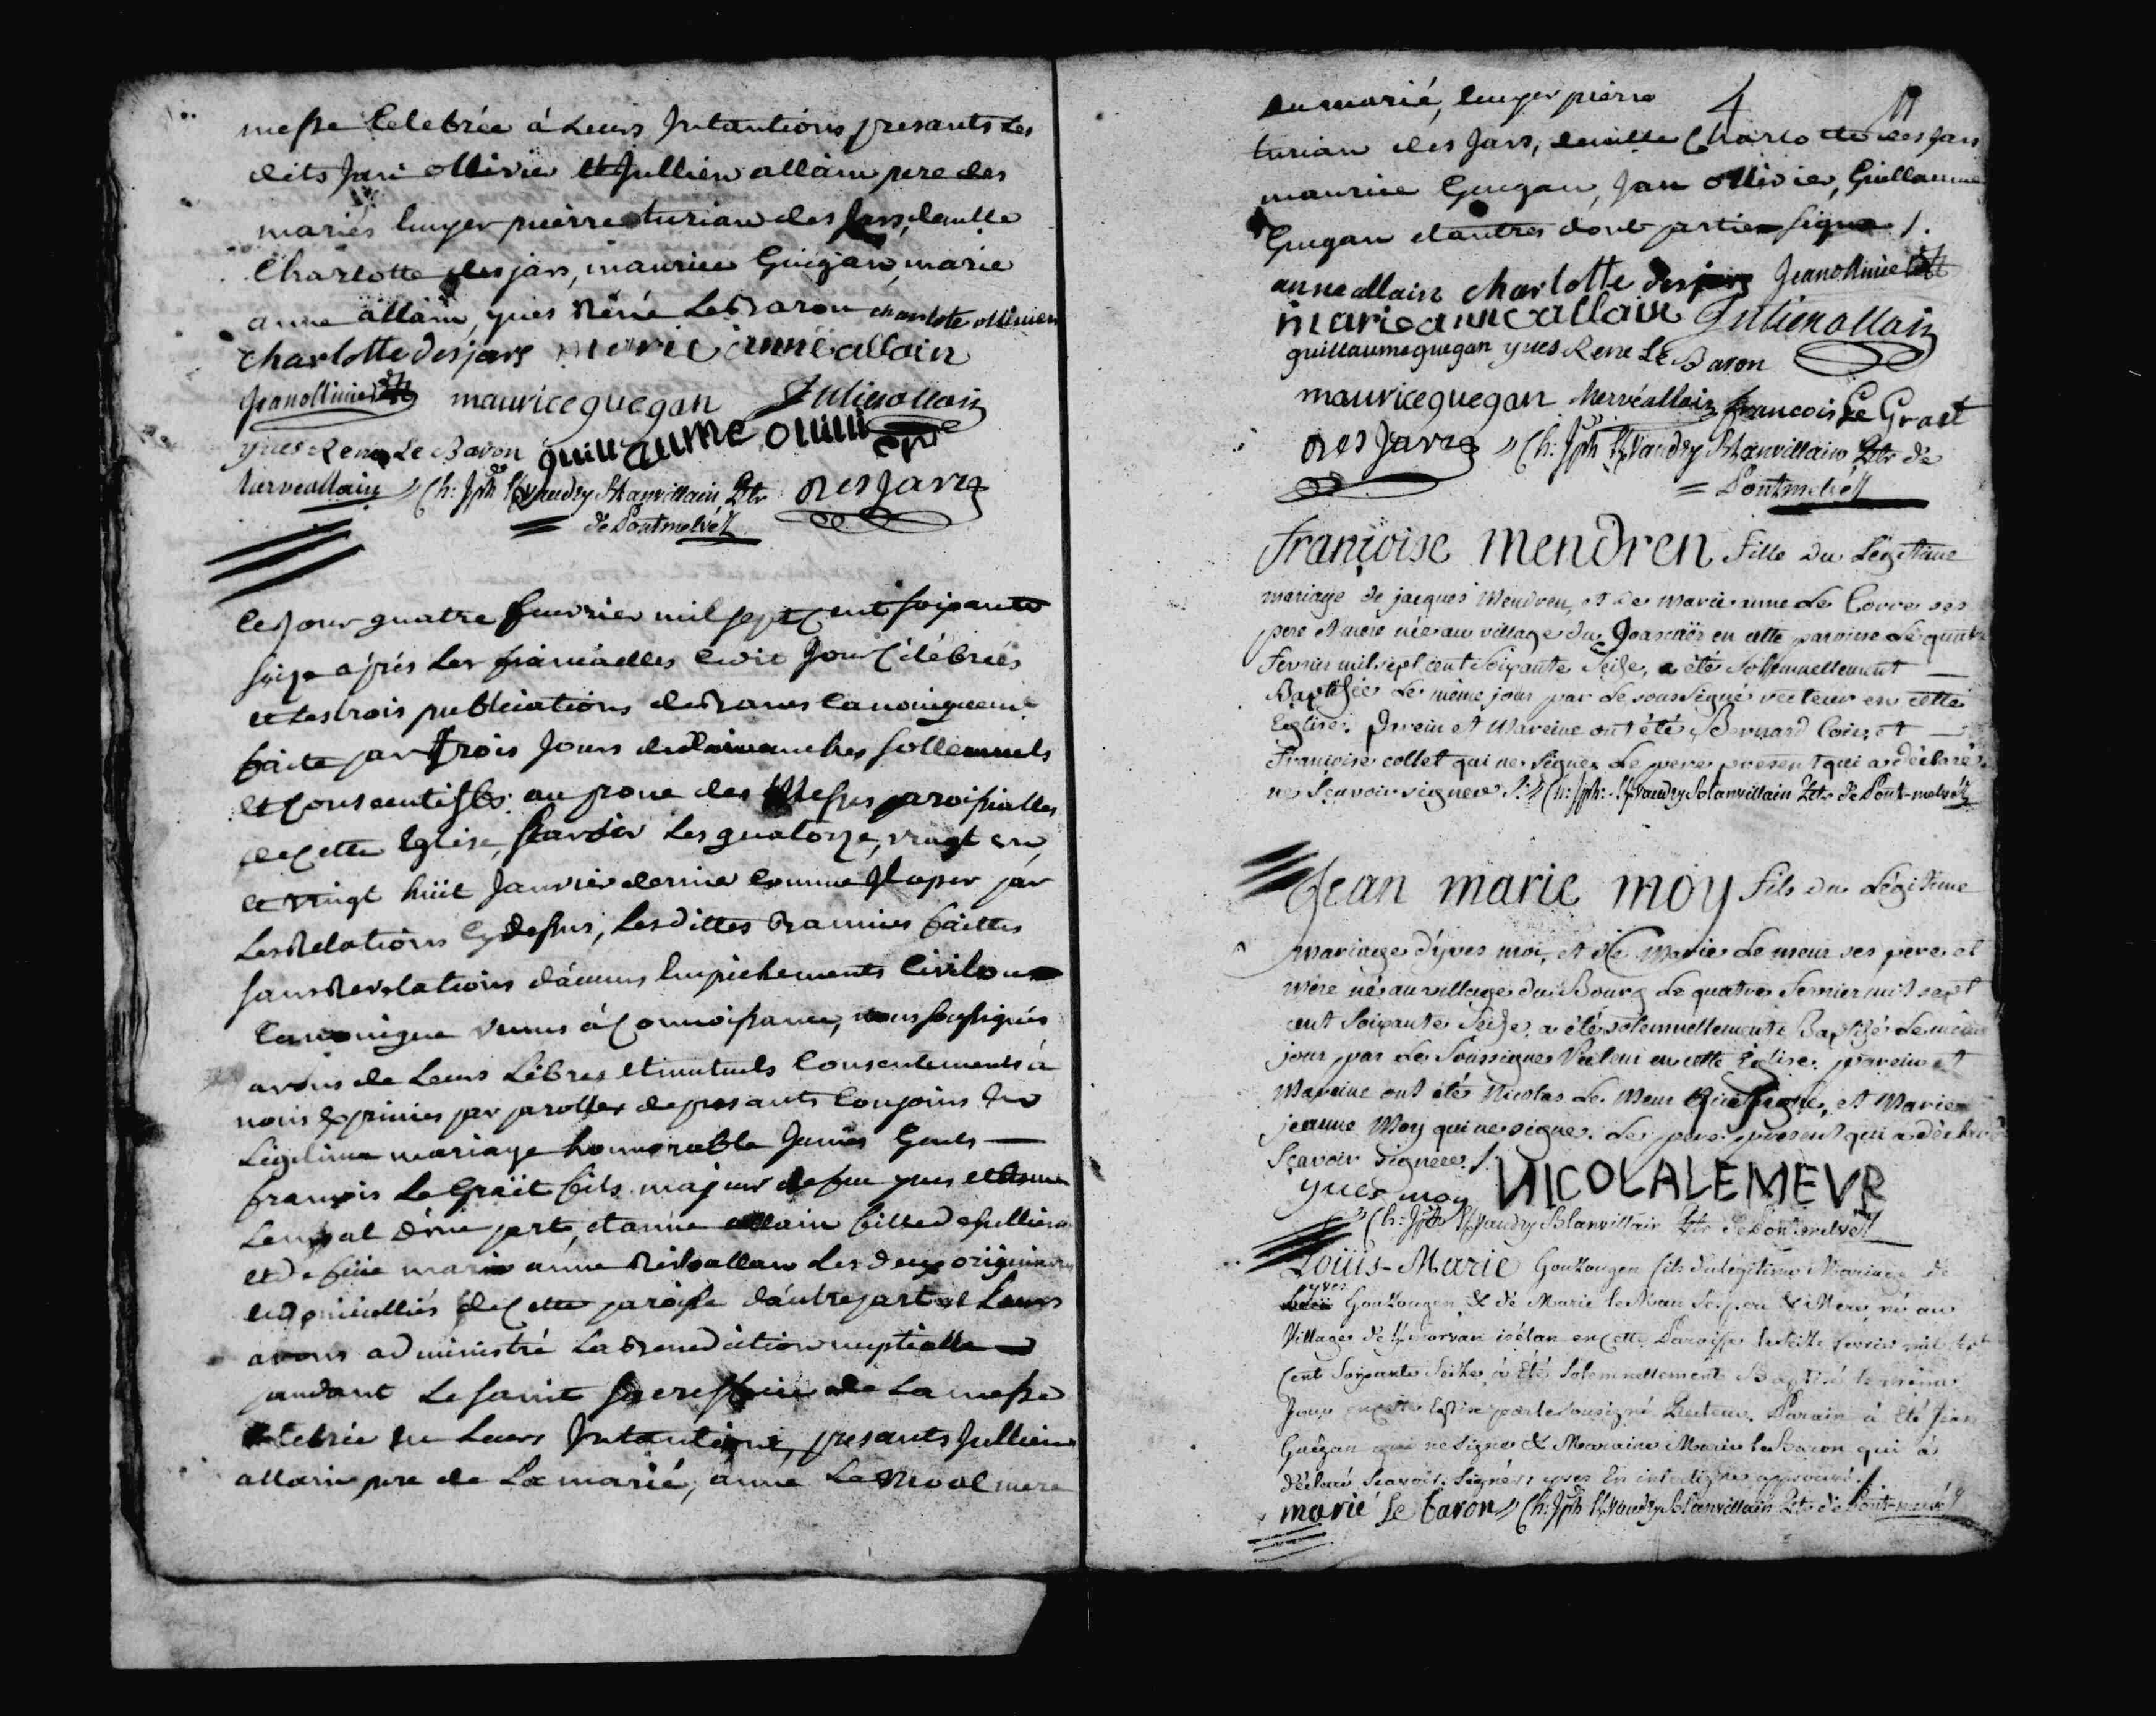 messe Celebrée á Leurs Intantions presants Les
dits Jan ollivier et Jullien allain pere des
mariés Ecuyer pierre turian des Jars, demlle
Charlotte des jars, maurice Guégan, marie
anne allain, yves Réné Le Baron charlote ollivier
charlotte desjars marie anne allain
Jean ollivier maurice guegan Julien allain
yves Rene Le Baron guillaume ollivi er
hervé allain Ch: Jph de Kvaudry Stanvillain Rtr desJars
= de Pontmelvez
Ce jour quatre fevrier mil sept Cent soixante
seize aprés Les fiancailles Celébrées
et Les trois publiations de Banes Canoniquem
faite par trois Jours de Dimanches sollemnels
et Consecutifs au prone des Messes paroissialles
de Cette Eglise, scavoir Les quatorze, vingt un,
et vingt hüit Janvier dernier Comme Il aper par
Les Relations Cy dessus, Les dittes Bannies faittes
sans Revelations d'aucuns Empichements Civil ou
Canonique venus á Connoissance, nous soussignés
avons de Leurs Libres et mutuels Consentements á
nous Exprimés par parolles de presants Conjoins En
Légitime mariage honnorable Jeunes Gents —
françois Le Graët fils majeur de feu yves et anne
Le d'une part, et anne allain fille de Jullien
et de feüe marie anne Les deux originaires
et domicilliés de Cette paroisse d'autre part et Leurs
avons administré La Benediction nuptialle
pandant Le saint sacrifice de La messe
Celebrée En Leurs Intantions, presants Jullien
allain pere de La marié, anne Le mere
du marié, Ecuyer pierre 4
turian des Jars, demlle Charlotte des Jars
maurice Guegan, Jan ollivier, Guillaume
Guegan et autres dont partie signe /.
anne allain charlotte desjars Jean ollivier
marie anne allain Julien allain
guillaume guegan yves Rene Le Baron
maurice guegan hervé allain francois Le Graet
desJars Ch: Jph de Kvaudry Stanvillain Rtr de
= Pontmelvez
françoise mendren fille du Légitime
mariage de jacques Mendren, et de Marie anne Le Corre ses
pere et mere née au village du en cette paroisse Le quatre
fevrier mil sept cent soixante seize, a été solemnellement —
Baptisée Le même jour par Le soussigné recteur en cette
Eglise. parein et Mareine ont été Bernard et —
françoise collet qui ne signe Le pere present qui a déclaré
ne sçavoir signer /. Ch: Jph: de Kvaudry Stanvillain Rtr de Pont-melvez
Jean marie moy fils du Légitime
mariage d'yves moi, et de Marie Le meur ses pere et
mére né au village du Bourg Le quatre fevrier mil sept
cent soixante seize, a été solemnellement Baptisé Le même
jour par Le soussigné Recteur en cette Eglise. parein et
Mareine ont été Nicolas Le Meur qui signe, et Marie
jeanne Moy qui ne signe. Le pere present qui a déclaré
sçavoir signer /.
yves moy NICOLALEMEVR
Ch: Jph Kvaudry Stanvillain Rtr de Pontmelvez
Loüis-Marie Gouzougen fils du légitime Mariage de
yves
Gouzougen & de Marie le Man Ses pere & Mere né au
Village de Kmorvan isélan en cette Paroisse le Seize fevrier mil sept
Cent Soixante Seize, à été Solemnellement Baptisé le même
Jour en cette Eglise par le Sousigné Recteur. Parain à été Jean
Guégan qui ne Signe & Maraine Marie le Baron qui à
déclaré Scavoir Signer, yves En interligne approuvé /.
marie Le baron Ch: Jph de Kvaudry Stanvillain Rtr de Pont-melvez